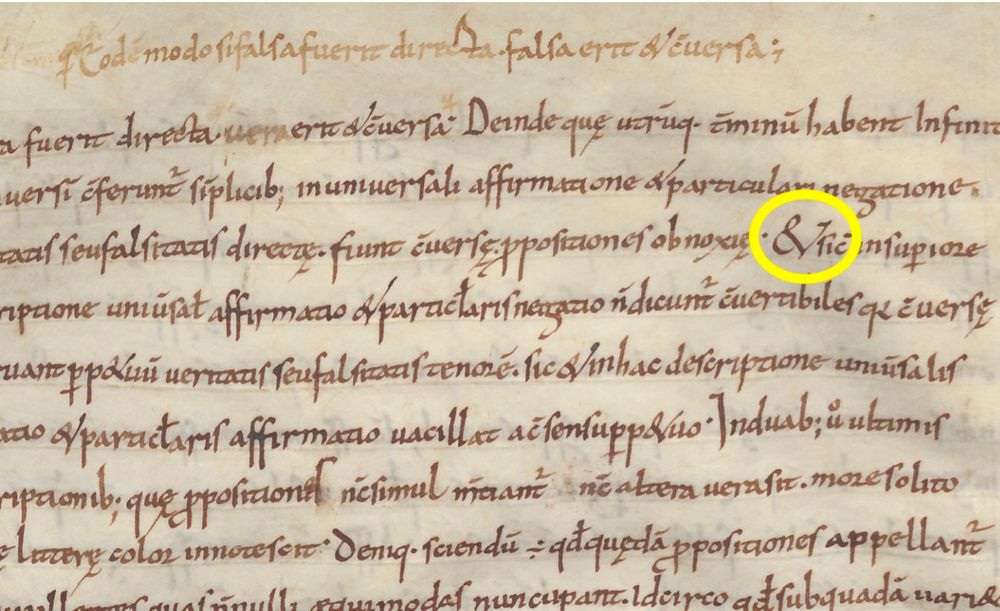 Eodē modo si falsa fuerit directa. falsa erit & c̄versa.;
a fuerit directa. vera erit & c̄versa. Deinde quę utrūq. t̄minū habent Infinit
versī c̄ferunt̄ sīplicib; in universali affirmatione & particulari negatione.
tatis seu falsitatis directę. fiunt c̄versę ꝓpositiones obnoxię. & sic̄ in supiore
riptione univ̄sal̄ affirmatio & particl̄aris negatio n̄ dicunt̄ c̄vertibiles q̄ c̄versę
vant ꝑp&uū veritatis seu falsitatis tenorē. sic & in hac descriptione univ̄salis
atio & particl̄aris affirmatio vacillat ac̄sensu ꝑp&uo. In duab; v̊ ultimis
riptionib; quę ꝓpositiones nc̄ simul m̄tiant̄ nc̄ altera vera sit. more solito
ę litterę color innotescit. Deniq. sciendū ÷ qd̄ quędā ꝓpositiones appellant̄
quas n̄nulli ęquimodas nuncupant. Idcirco qd̄ sub quadā vari&